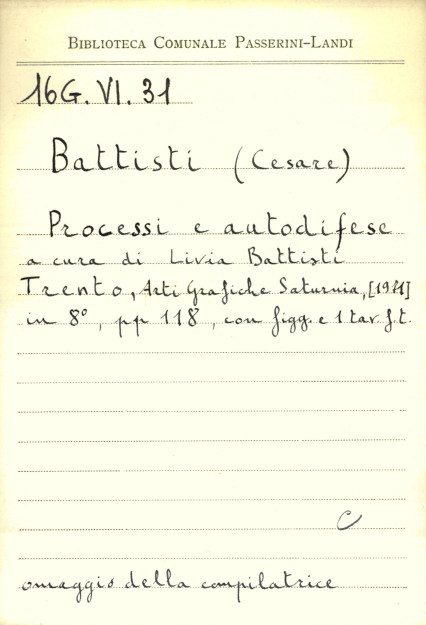 Biblioteca Comunale Passerini-Landi
16G. VI. 31
Battisti (Cesare)
Processi e autodifese
a cura di Livia Battisti
Trento, Arti Grafiche Saturnia, [1971]
in 8°, pp 118, con figg. e 1 tav. f. t.
C
omaggio della compilatrice